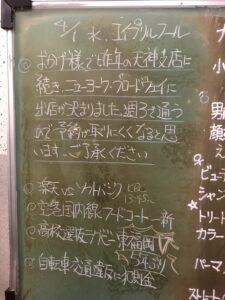 4/1 水、エイプリルフール
◎おかげ様で昨年の天神支店に
続き、ニューヨーク・ブロードウェイに
出店が決まりました。週3で通う
ので予約が取りにくくなると思
います。ご了承ください
◎楽天 vs ソフトバンク KBC
13:45~
◎空港国内線フードコート一新
◎高校選抜ラグビー東福岡
5年ぶりV
◎自転車交通違反に反則金
小
男
顔
ビュー
シャン
★トリート
カラー
パーマ
ストレート